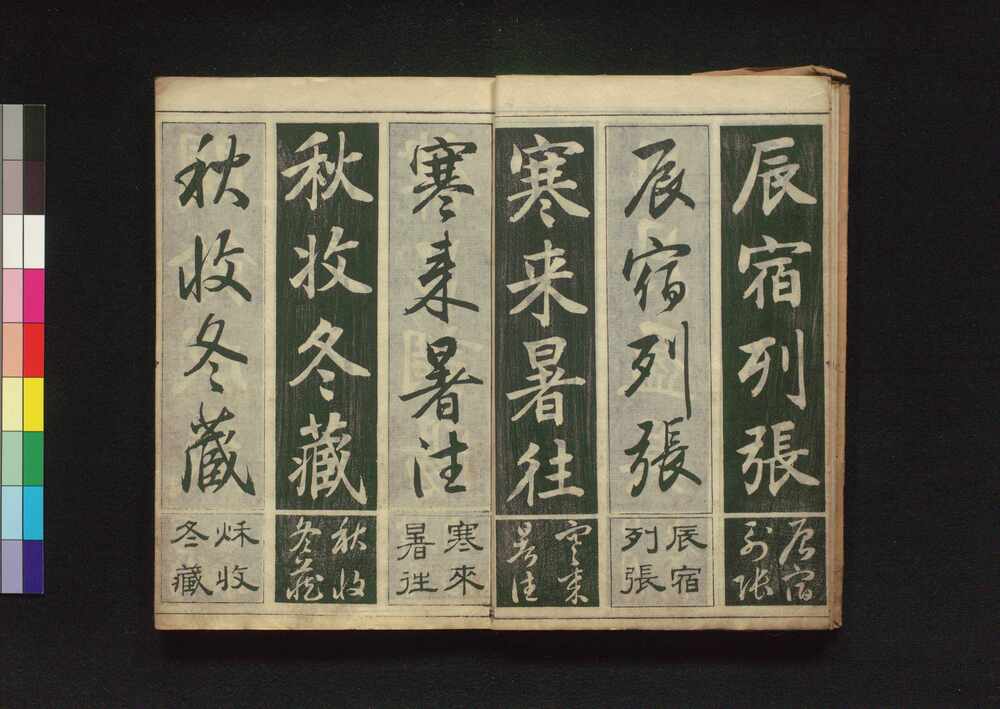 辰宿列張
辰宿
列張
辰宿列張
辰宿
列張
寒来暑往
寒来
暑往
寒来暑往
寒來
暑往
秋收冬藏
秋收
冬藏
秋收冬藏
秌收
冬藏